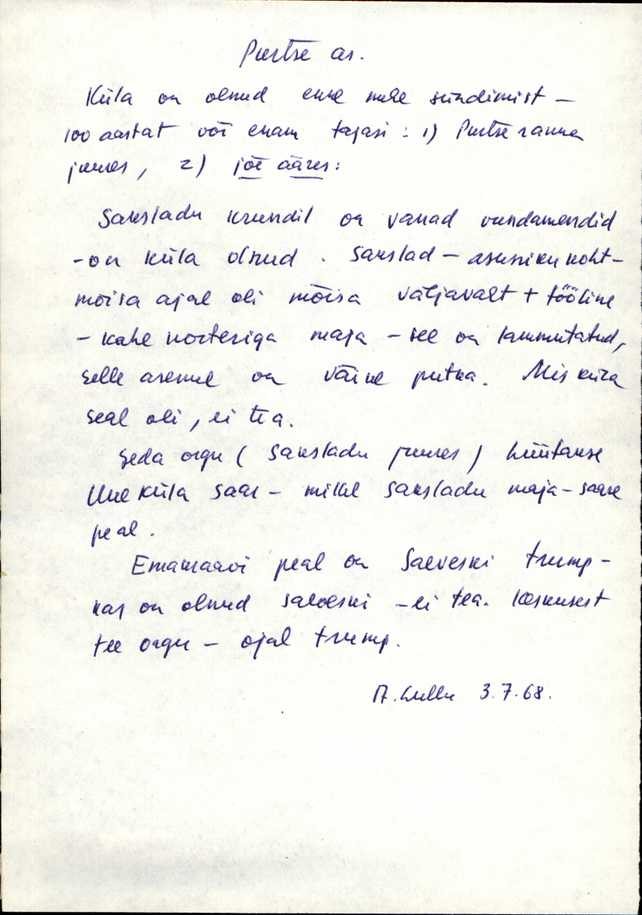 Purtse as.
Küla on olnud enne meie sündimist –
100 aastat või enam tagasi : 1) Purtse ranna
juures, 2) jõe ääres:
Saksladu krundil on vanad vundamendid
- on küla olnud. Sakslad – asuniku koht –
mõisa ajal oli mõisa väljavalt + tööline
- kahe korteriga maja – see on lammutatud,
selle asemel on väine putka. Mis küla
seal oli, ei tea.
Seda orgu ( Saksladu juures ) hüütakse
Uue küla saar – millel Saksladu maja – saare
peal.
Emakraavi peal on Saeveski trump –
kas on olnud saeveski – ei tea. Keskusest
tee orgu – ojal trump.
3.7.68.